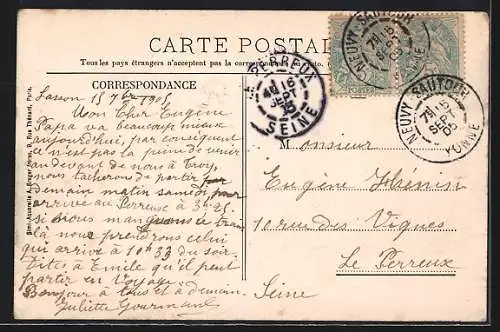 CARTE POSTALE
Tous les pays étrangers n'acceptent pas la correspondance au
CORRESPONDANCE
Sasson 15 7bre 1905
Mon Cher Eugène
Papa va beaucoup mieux
aujourd'hui, par conséquent
ce n'est pas la peine de venir
au devant de nous à Troy,
nous tacherons de partir par
demain matin samedi pour
arrive au Perreux à 3h25.
si nous manquons ce train
là nous prendrons celui
qui arrive à 10h33 du soir.
Dites à Emile qu'il peut
partir en Voyage
Bonjour à tous et à demain.
Juliette Gourmand
PERREUX
16
SEPT
05
SEINE
NEUVY SAUTOUR
7H 15
SEPT
05
YONNE
NEUVY SAUTOUR
7H 15
SEPT
05
YONNE
Monsieur
Eugène Hénin
10 rue des Vignes
Le Perreux
Seine